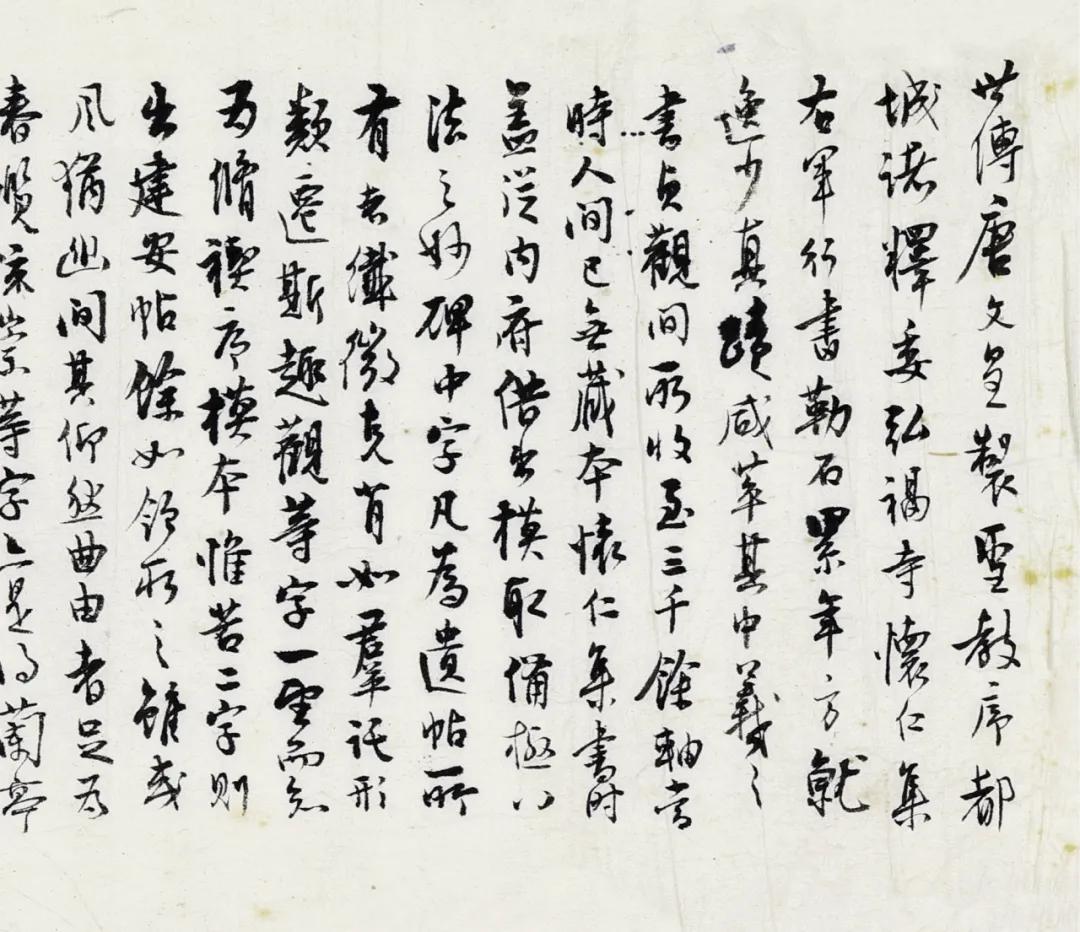 世傳唐文皇製聖教序都
城諸釋委弘福寺懷仁集
右軍行書勒石累年方就
逸少真蹟咸萃其中羲之
書貞觀間所收至三千餘軸當
時人間已無藏本懷仁集書時
蓋從內府借出模取備極八
法之妙碑中字凡為遺帖所
有者纖微克肖如羣託形
類遷斯趣觀等字一望而知
為脩禊序模本惟苦二字則
出建安帖餘如領取之雖或
風猶幽間其仰然曲由者足為
春覽崇等字亦是得蘭亭